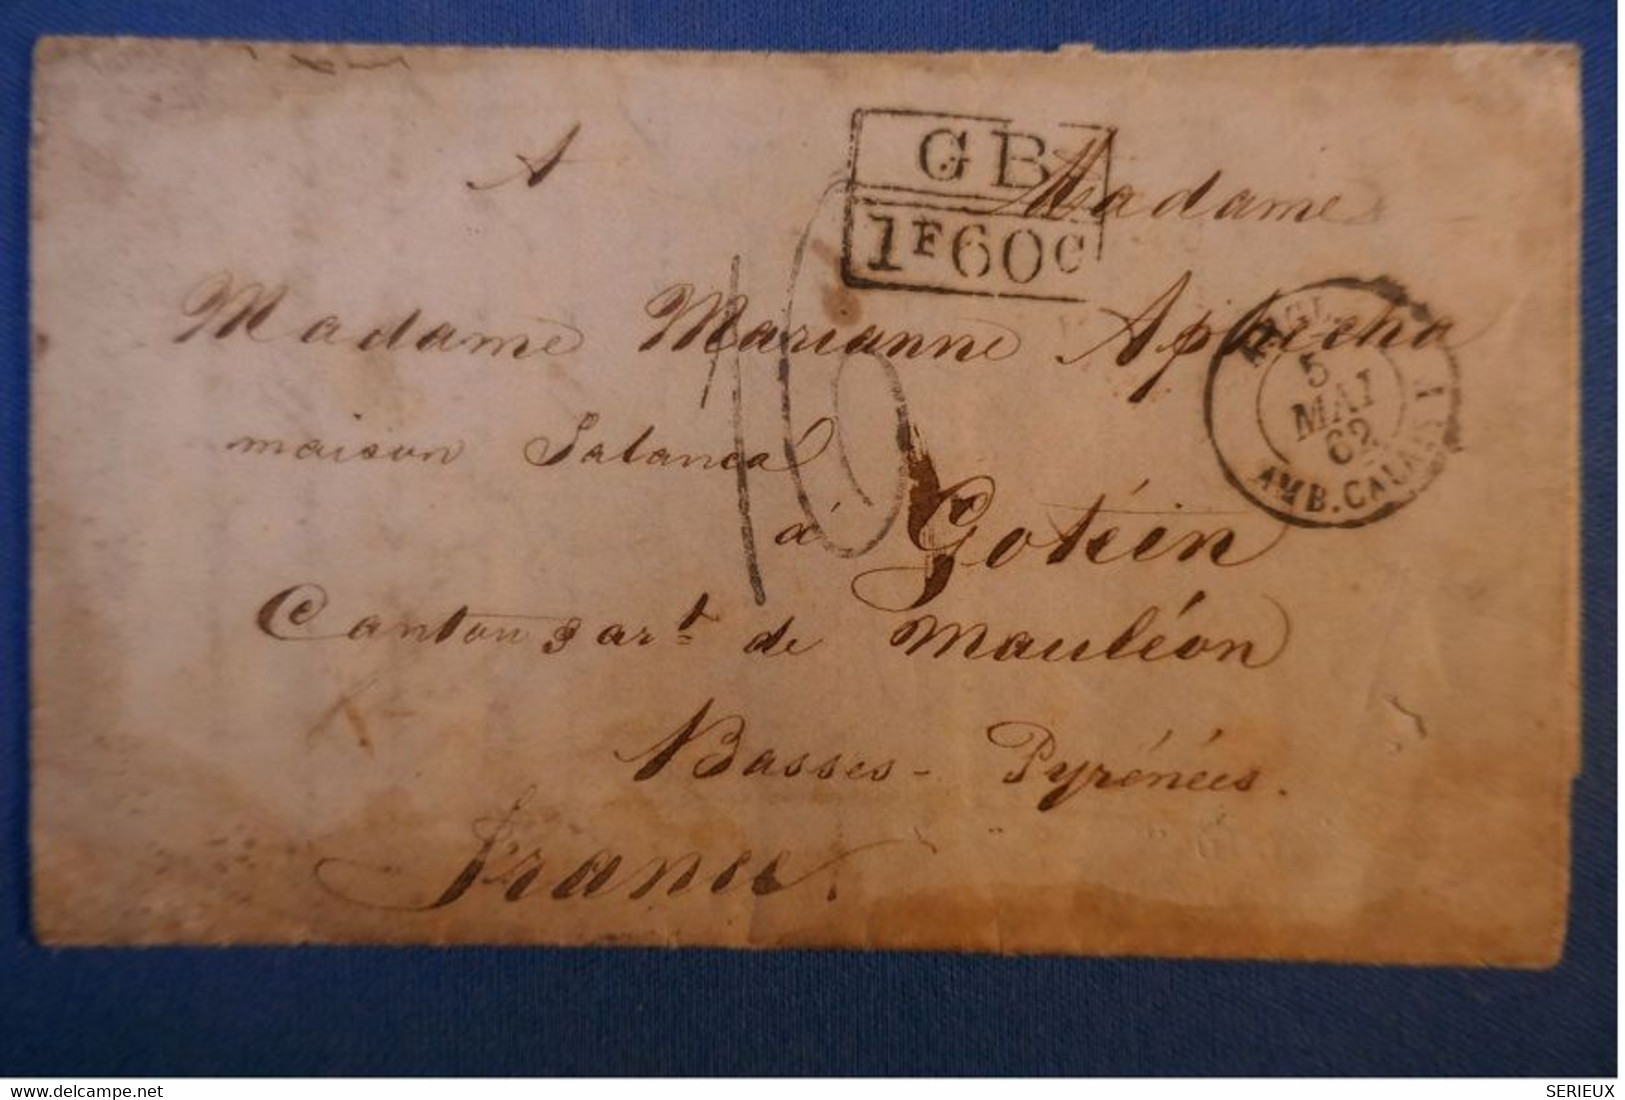 A Madame
GB
1F60C
Madame Marianne Aphecha
ANGL.
5
MAI
62
AMB. CALAIS
maison Salanca
16
à Gotein
Canton & art de Mauléon
Basses-Pyrénées.
France.
delcampe.net
SERIEUX